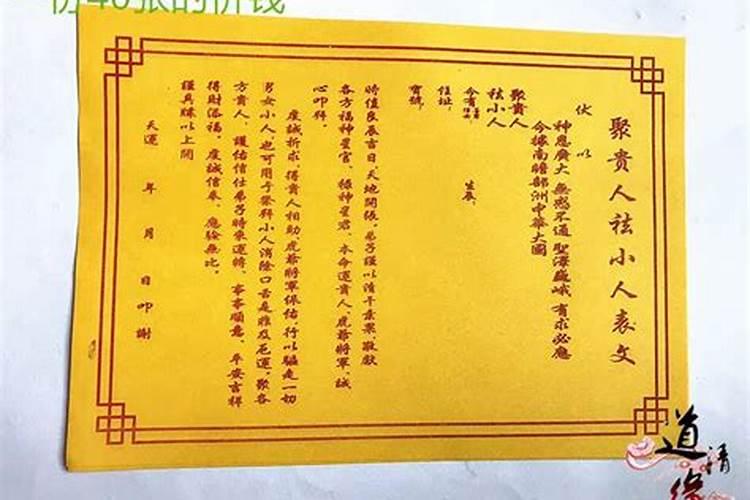 一份40张的价钱
聚貴人祛小人表文
伏以
神恩廣大 無感不通 聖澤盛峨 有求必應
今據南瞻部洲中華大國
聚貴人
祛小人
今有
住址
生辰
寶號
時值良辰吉日、天地開張、弟子謹以清干素菓 敬獻
各方福神星官、祿神星君、本命運貴人、虎爺將軍、誠
心叩拜。
虔誠祈求、得貴人相助虎爺將軍保佑 行以驅走一切
男女小人、也可用于祭拜小人消除口舌是非及厄運、聚各
方貴人、護佑信仕弟子時來運轉、事事順意、平安吉祥
得財添福、虔誠信奉、應驗無比、
謹具牒以上聞
天運 年 月 日叩謝
道
清
缘